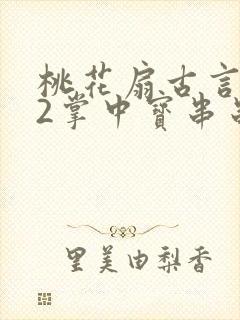 桃花扇古言
2掌中寳串
里美由梨香